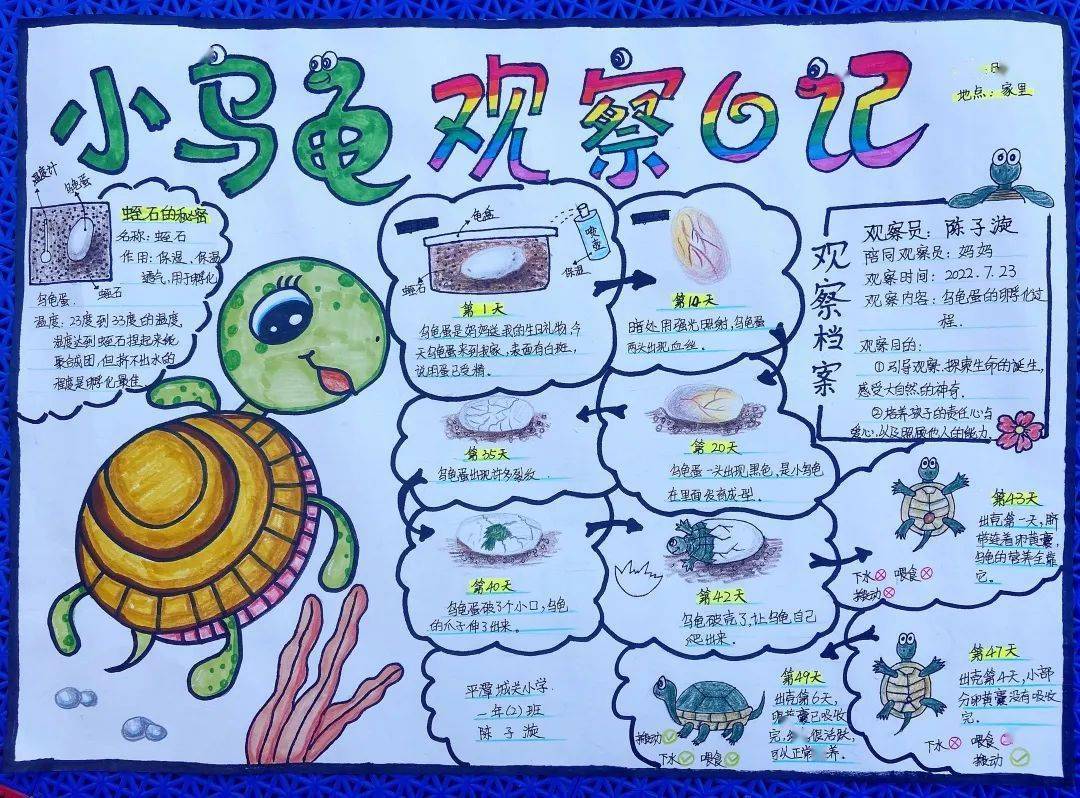 小乌龟观察日记
地点：家里
温度计
乌龟蛋
蛭石的秘密
名称：蛭石
作用：保湿、保温
透气，用于孵化
乌龟蛋
蛭石
温度：23度到33度的温度，
湿度达到蛭石捏起来能
聚成团，但挤不出水的
程度是孵化最佳
龟盒
喷壶
保湿
蛭石
第1天
乌龟蛋是妈妈送我的生日礼物，今
天乌龟蛋来到我家，表面有白斑，
说明蛋已受精。
第14天
暗处用强光照射，乌龟蛋
两头出现血丝。
第20天
乌龟蛋一头出现黑色，是小乌龟
在里面发育成型。
第35天
乌龟蛋出现许多裂纹
第40天
乌龟蛋破了个小口，乌龟
的爪子伸了出来。
第42天
乌龟破壳了，让乌龟自己
爬出来。
第43天
出壳第一天，脐
带连着卵黄囊，
乌龟的营养全靠
它。
下水 喂食
搬动
第47天
出壳第4天，小部
分卵黄囊没有吸收
完。
下水 喂食
搬动
第49天
出壳第6天，
卵黄囊已吸收
完，很活跃，
可以正常养。
搬动
下水 喂食
观察档案
观察员：陈子漩
陪同观察员：妈妈
观察时间：2022.7.23
观察内容：乌龟蛋的孵化过
程.
观察目的：
①引导观察、探索生命的诞生，
感受大自然的神奇.
②培养孩子的责任心与
爱心，以及照顾他人的能力.
平潭城关小学
一年(2)班
陈子漩